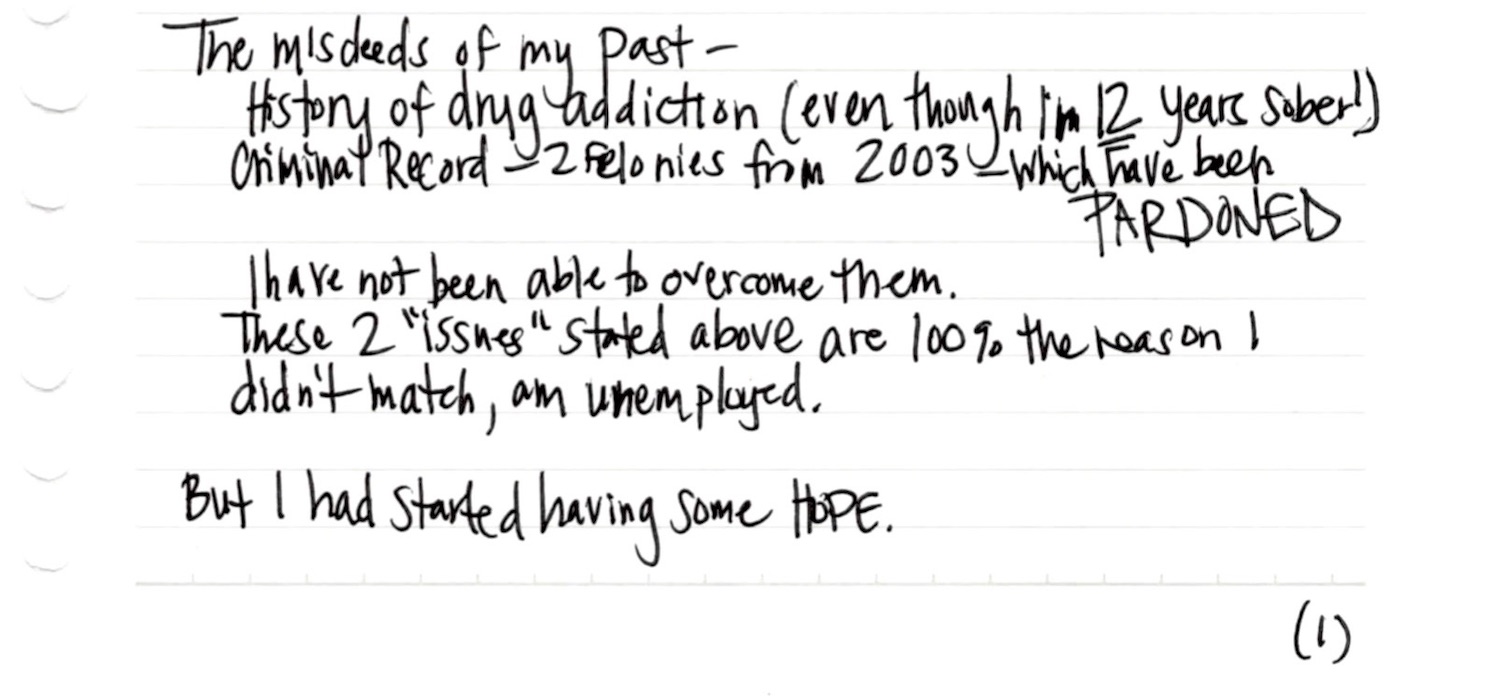 The misdeeds of my past -
History of drug addiction (even though I'm 12 years sober!)
Criminal Record - 2 Felonies from 2003 - which have been
PARDONED
I have not been able to overcome them.
These 2 "issues" stated above are 100% the reason I
didn't match, am unemployed.
But I had started having some HOPE.
(1)